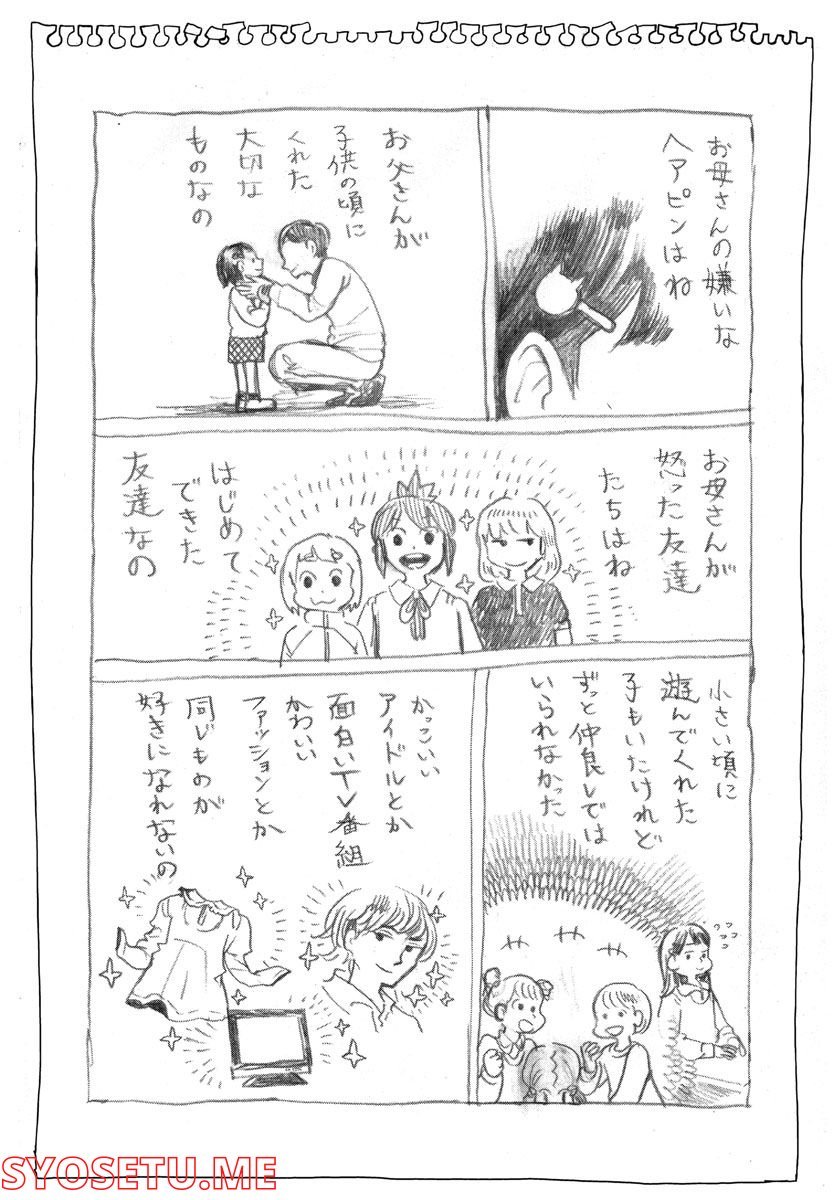 お母さんの嫌いな
ヘアピンはね
お父さんが
子供の頃に
くれた
大切な
ものなの
お母さんが
怒った友達
たちはね
はじめて
できた
友達なの
小さい頃に
遊んでくれた
子もいたけれど
ずっと仲良しでは
いられなかった
ワワ
ワワ
かっこいい
アイドルとか
面白いTV番組
かわいい
ファッションとか
同じものが
好きになれないの
SYOSETU.ME